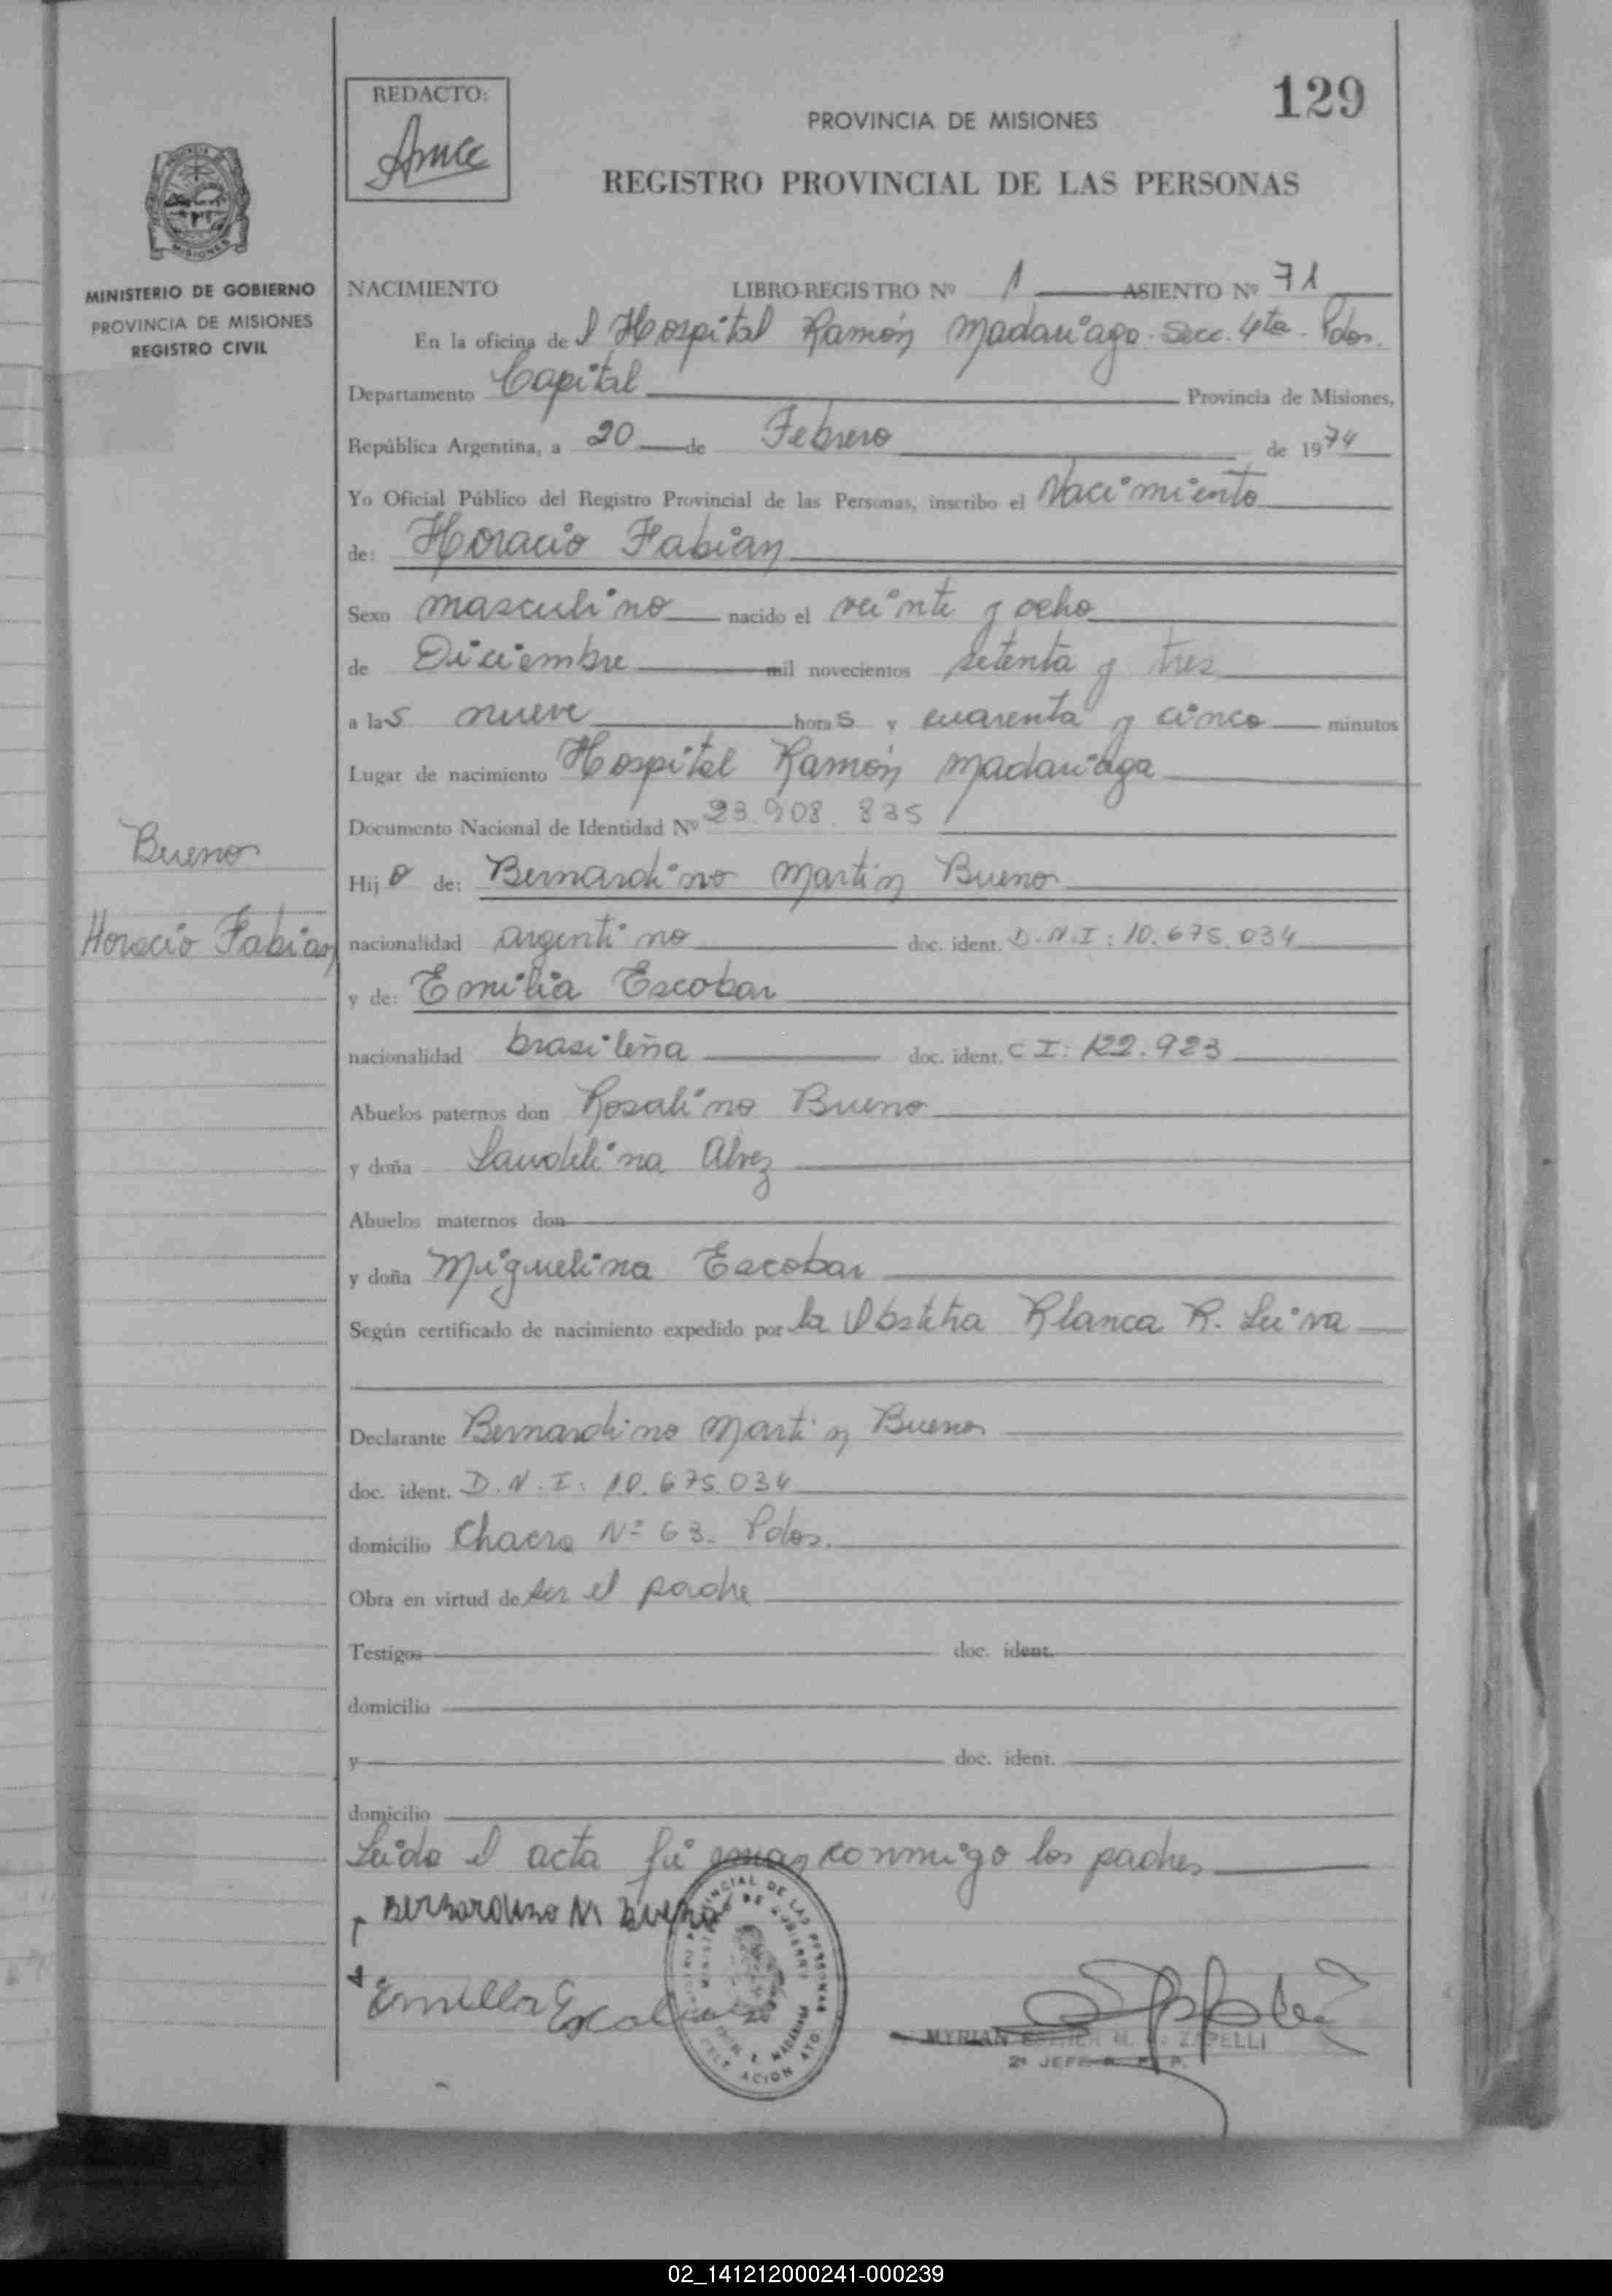 129
REDACTO:
PROVINCIA DE MISIONES
REGISTRO PROVINCIAL DE LAS PERSONAS
MISIONES
MINISTERIO DE GOBIERNO
PROVINCIA DE MISIONES
REGISTRO CIVIL
NACIMIENTO LIBRO-REGISTRO Nº 1 ASIENTO Nº 71
En la oficina del Hospital Ramón Madariaga. Secc. 4ta. Pdas.
Departamento Capital Provincia de Misiones,
República Argentina, a 20 de Febrero de 1974
Yo Oficial Público del Registro Provincial de las Personas, inscribo el Nacimiento
de: Horacio Fabian
Sexo masculino nacido el veinte y ocho
de Diciembre mil novecientos setenta y tres
a las nueve horas y cuarenta y cinco minutos
Lugar de nacimiento Hospital Ramón Madariaga
Documento Nacional de Identidad Nº 23.908.835
Bueno
Hijo de: Bernardino Martin Bueno
Horacio Fabian
nacionalidad argentino doc. ident. D.N.I: 10.675.034
y de: Emilia Escobar
nacionalidad brasileña doc. ident. C I: 122.923
Abuelos paternos don Rosalino Bueno
y doña Laudelina Alvez
Abuelos maternos don
y doña Miguelina Escobar
Según certificado de nacimiento expedido por la Obstetra Blanca R. Leiva
Declarante Bernardino Martin Bueno
doc. ident. D.N.I: 10.675.034
domicilio Chacra Nº 63. Pdas.
Obra en virtud de ser el padre
Testigos doc. ident.
domicilio
y doc. ident.
domicilio
Leida el acta firman conmigo los padres
Bernardino M Bueno
Emilia Escobar
MYRIAN ESTHER M. DE ZAPELLI
2º JEFE R. P. P.
02_141212000241-000239